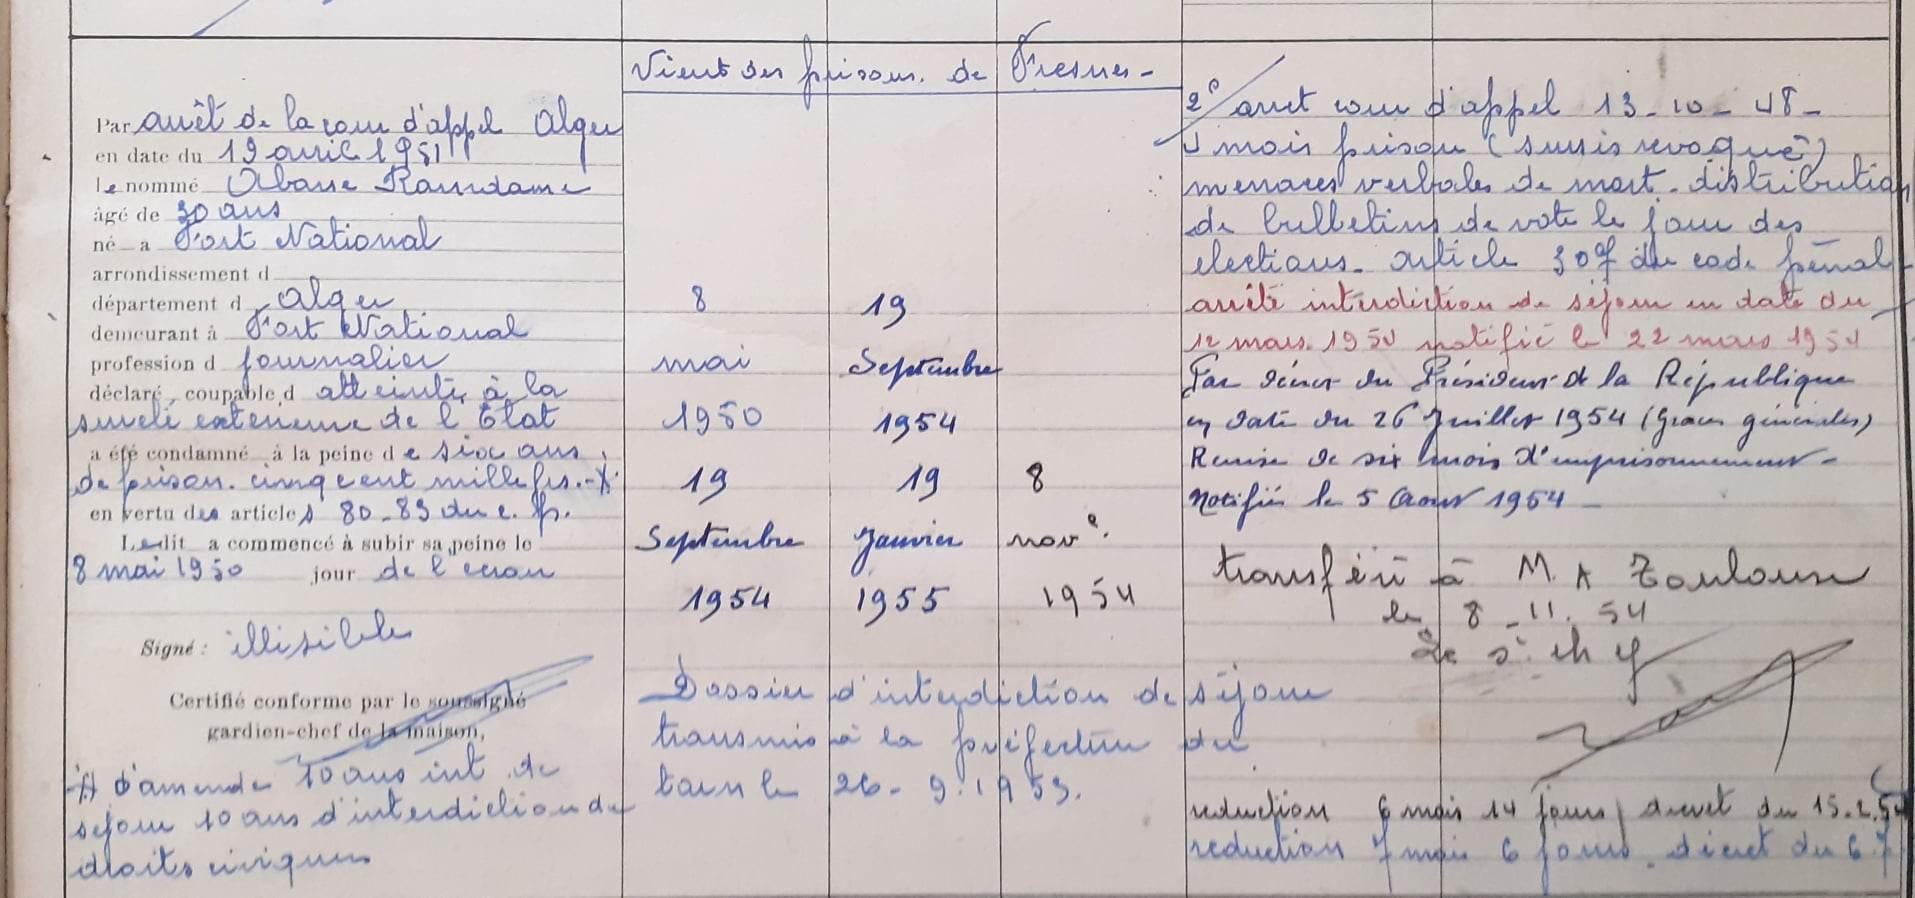 Vient des prisons de Fresnes -
Par arrêt de la cour d'appel Alger
en date du 19 avril 1951
le nommé Abane Ramdame
âgé de 30 ans
né a Fort National
arrondissement d
département d Alger
demeurant à Fort National
profession d journalier
déclaré coupable d atteinte à la
sureté exterieure de l'Etat
a été condamné à la peine de six ans
de prison. cinq cent mille frs. - X
en vertu des articles 80-83 du c. p.
Ledit a commencé à subir sa peine le
8 mai 1950 jour de l'ecrou
Signé : illisible
Certifié conforme par le soussigné
gardien-chef de la maison,
X d'amende 10 ans int de
sejour 10 ans d'interdiction de
droits civiques
8 19
mai Septembre
1950 1954
19 19 8
Septembre Janvier nov e.
1954 1955 1954
Dossier d'interdiction de séjour
transmis à la préfecture du
tarn le 26-9.1953.
2° arret cour d'appel 13-10-48-
mois prison (sursis revoqué)
menaces verbales de mort. distribution
de bulletins de vote le jour des
elections. article 307 du code pénal
arrêté interdiction de séjour en date du
12 mars 1954 notifié le 22 mars 1954
Par décret du Président de la République
en date du 26 Juillet 1954 (Graces générales)
Remise de six mois d'emprisonnement -
Notifiée le 5 Aout 1954 -
transféré à M. A Toulouse
le 8-11.54
reduction 6 mois 14 jours decret du 15.2.54
reduction 7 mois 6 jours. décret du 6.7